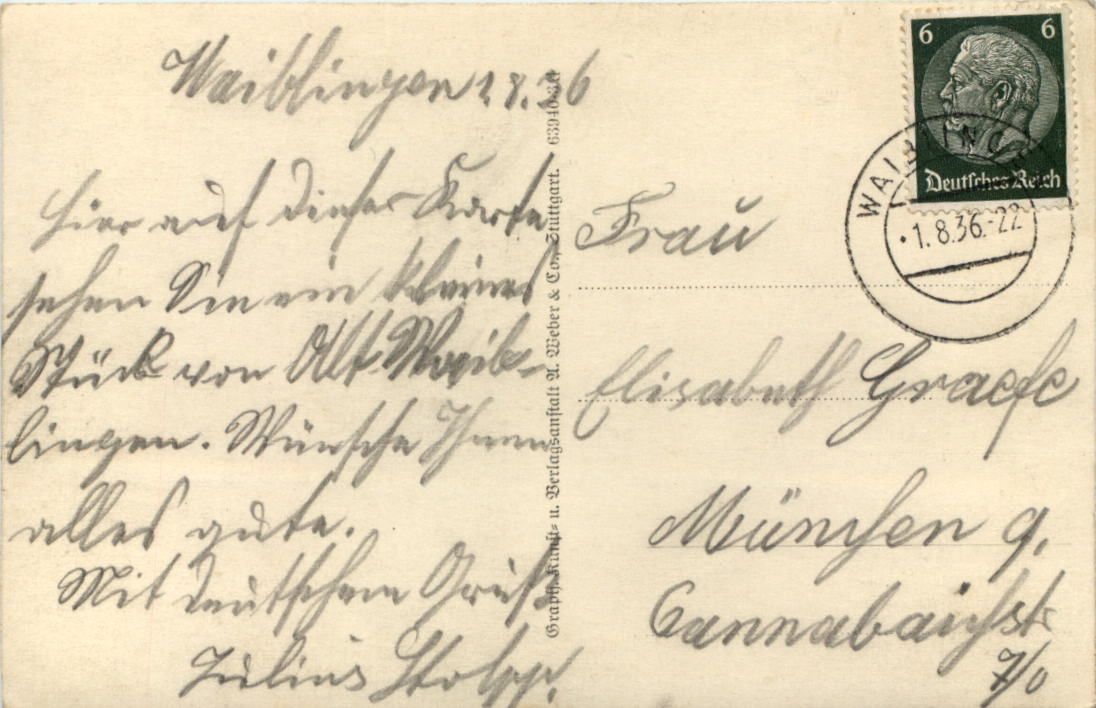 Waiblingen 1.8.36
Hier auf dieser Karte
sehen Sie ein kleines
Stück von Alt Waib-
lingen. Wünsche Ihnen
alles gute.
Mit deutschem Gruß
Julius
Graph. Kunst- u. Verlagsanstalt A. Weber & Co., Stuttgart. 63940
6 6
Deutsches Reich
WAIBLINGEN
1.8.36.-22
Frau
Elisabeth Graefe
München 9.
Cannabichstr
7/0